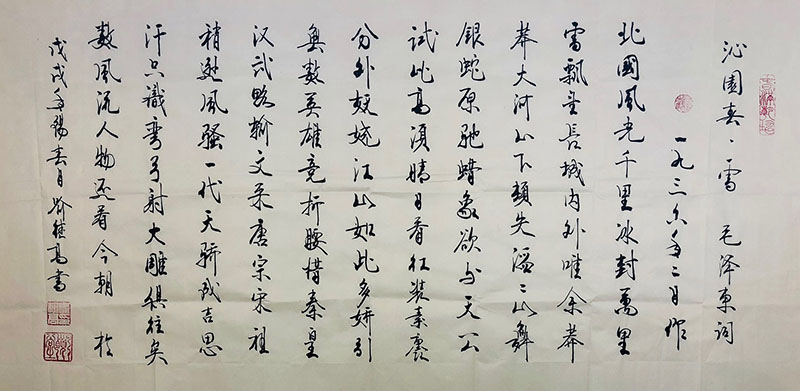 沁園春·雪 毛泽东词
一九三六年二月作
北國風光千里冰封萬里
雪飄望長城内外唯余莽
莽大河上下頓失滔〻山舞
銀蛇原馳蜡象欲与天公
試比高須晴日看红装素裹
分外妖娆江山如此多娇引
無數英雄竞折腰惜秦皇
汉武略輸文采唐宗宋祖
稍逊風骚一代天骄成吉思
汗只識彎弓射大雕俱往矣
數風流人物还看今朝 於
戊戌年陽春月 桂高書